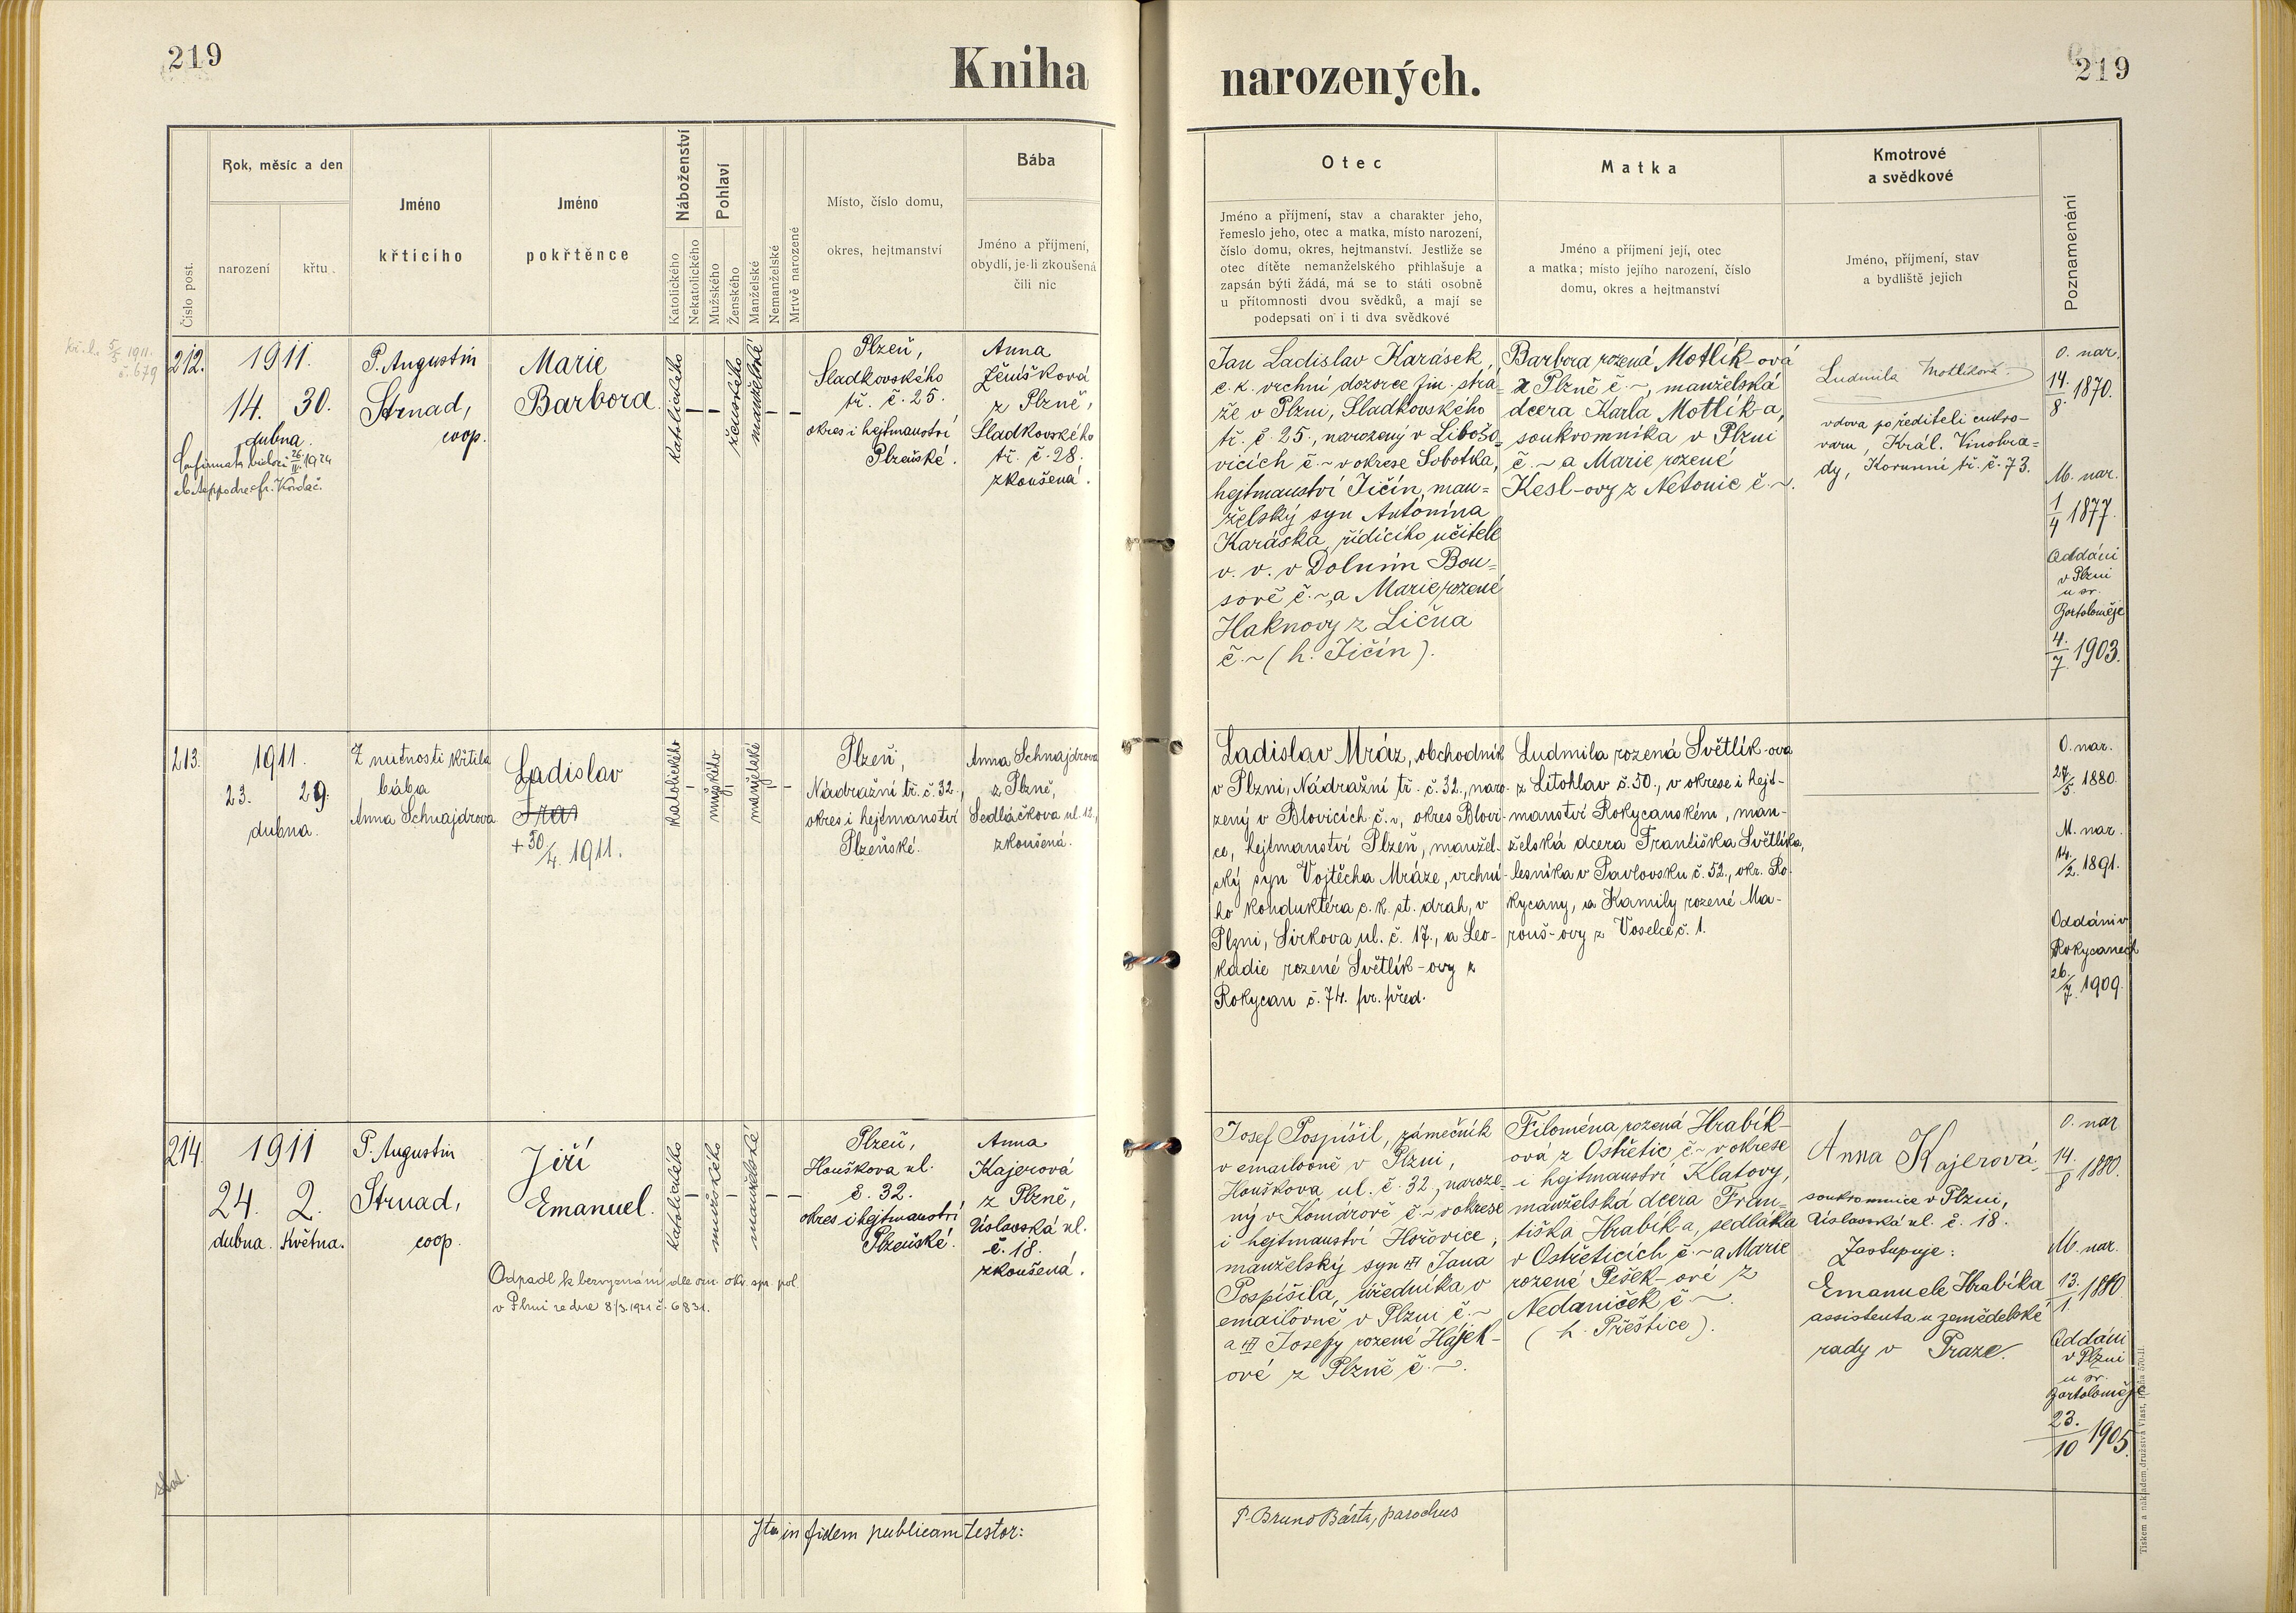 219
Kniha
narozených.
219
Číslo post.
Rok, měsíc a den
narození
křtu
Jméno
křtícího
Jméno
pokřtěnce
Náboženství
Katolického
Nekatolického
Pohlaví
Mužského
Ženského
Manželské
Nemanželské
Mrtvě narozené
Místo, číslo domu,
okres, hejtmanství
Bába
Jméno a příjmení,
obydlí, je-li zkoušená
čili nic
Otec
Jméno a příjmení, stav a charakter jeho,
řemeslo jeho, otec a matka, místo narození,
číslo domu, okres, hejtmanství. Jestliže se
otec dítěte nemanželského přihlašuje a
zapsán býti žádá, má se to státi osobně
u přítomnosti dvou svědků, a mají se
podepsati on i ti dva svědkové
Matka
Jméno a příjmení její, otec
a matka; místo jejího narození, číslo
domu, okres a hejtmanství
Kmotrové
a svědkové
Jméno, příjmení, stav
a bydliště jejich
Poznamenání
5/5 1911.
č. 679
212.
1911.
14. 30.
dubna.
26/IV 1924
P. Augustin
Strnad,
coop.
Marie
Barbora.
katolického
–
–
ženského
manželské
–
–
Plzeň,
Sladkovského
tř. č. 25.
okres i hejtmanství
Plzeňské.
Anna
Zemšková
z Plzně,
Sladkovského
tř. č. 28.
zkoušená.
Jan Ladislav Karásek,
c. k. vrchní dozorce fin. strá=
že v Plzni, Sladkovského
tř. č. 25., narozený v Libošo-
vicích č. ~ v okrese Sobotka,
hejtmanství Jičín, man=
želský syn Antonína
Karáska, řídícího učitele
v. v. v Dolním Bou=
sově č. ~, a Marie rozené
Haknovy z Lična
č. ~ (h. Jičín).
Barbora rozená Motlík-ová
z Plzně č. ~, manželská
dcera Karla Motlík-a,
soukromníka v Plzni
č. ~ a Marie rozené
Kesl-ovy z Netonic č. ~.
Ludmila Motlíková.
vdova po řediteli cukro-
varu, Král. Vinohra-
dy, Korunní tř. č. 73.
O. nar.
14./8 1870.
M. nar.
1/4 1877.
Oddáni
v Plzni
u sv.
Bartoloměje
4./7. 1903.
213.
1911.
23. 29.
dubna.
Z nutnosti křtila
bába
Anna Schnajdrova
Ladislav
+ 30/4. 1911.
katolického
–
mužského
–
manželské
–
–
Plzeň,
Nádražní tř. č. 32.,
okres i hejtmanství
Plzeňské.
Anna Schnajdrova
z Plzně,
Sedláčkova ul. 12.,
zkoušená.
Ladislav Mráz, obchodník
v Plzni, Nádražní tř. č. 32., naro-
zený v Blovicích č. ~, okres Blovi-
ce, hejtmanství Plzeň, manžel-
ský syn Vojtěcha Mráze, vrchní-
ho konduktéra c. k. st. drah, v
Plzni, Sirkova ul. č. 17., a Leo-
kadie rozené Světlík-ovy z
Rokycan č. 74. pr. před.
Ludmila rozená Světlík-ova
z Litohlav č. 50., v okrese i hejt-
manství Rokycanském, man-
želská dcera Františka Světlíka,
lesníka v Pavlovsku č. 52., okr. Ro-
kycany, a Kamily rozené Ma-
rouš-ovy z Voselce č. 1.
O. nar.
27/5. 1880.
M. nar.
14/2. 1891.
Oddáni v
Rokycanech
26./7. 1909.
214.
1911
24. 2.
dubna. května.
P. Augustin
Strnad,
coop.
Jiří
Emanuel.
Odpadl k bezvyznání dle ozn. okr. spr. pol.
v Plzni ze dne 8/3. 1921 č. 6831.
katolického
–
mužského
–
manželské
–
–
Plzeň,
Houškova ul.
č. 32.
okres i hejtmanství
Plzeňské.
Anna
Kajerová
z Plzně,
Úslavská ul.
č. 18.
zkoušená.
Josef Pospíšil, zámečník
v emailovně v Plzni,
Houškova ul. č. 32, naroze=
ný v Komárově č. ~ v okrese
i hejtmanství Hořovice,
manželský syn † Jana
Pospíšila, úředníka v
emailovně v Plzni č. ~
a † Josefy rozené Hájek-
ové z Plzně č. ~.
Filoména rozená Hrabík-
ová z Ostřetic č. ~ v okrese
i hejtmanství Klatovy,
manželská dcera Fran=
tiška Hrabíka, sedláka
v Ostřeticích č. ~ a Marie
rozené Pešek-ové z
Nedaniček č. ~.
(h. Přeštice).
Anna Kajerová,
soukromnice v Plzni,
Úslavská ul. č. 18.
Zastupuje:
Emanuele Hrabíka
assistenta u zemědělské
rady v Praze.
O. nar
14./8 1880.
M. nar.
13./1. 1880
Oddáni
v Plzni
u sv.
Bartoloměje
23./10 1905.
Ita in fidem publicam testor:
P. Bruno Bárta, parochus
Tiskem a nákladem družstva Vlast, Praha 570-II.